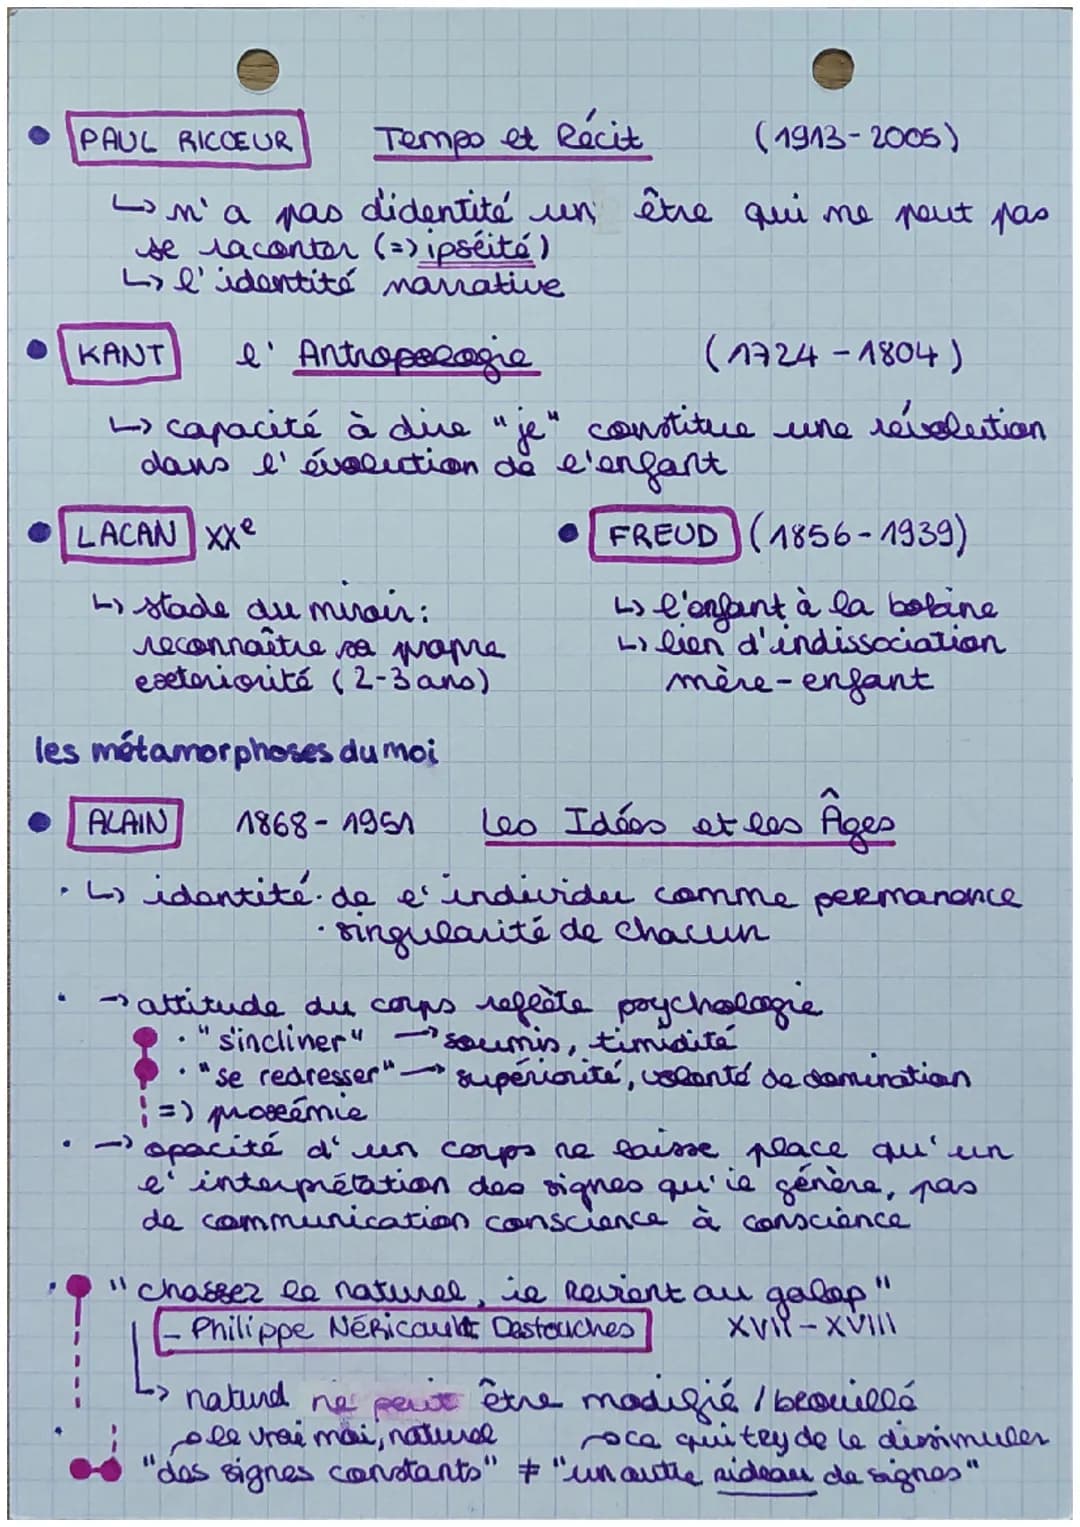 • PAUL RICŒUR Temps et Récit (1913-2005)
↳ n'a pas d'identité un être qui ne peut pas
se raconter (=> ipséité)
↳ l'identité narrative
• KANT l'Antropologie (1724-1804)
↳ capacité à dire "je" constitue une révolution
dans l'évolution de l'enfant
• LACAN XXe
↳ stade du miroir:
reconnaître sa propre
exteriorité (2-3ans)
• FREUD (1856-1939)
↳ l'enfant à la bobine
↳ lien d'indissociation
mère-enfant
les métamorphoses du moi
• ALAIN 1868-1951 Les Idées et les Âges
• ↳ identité • de l'individu comme permanence
• singularité de chacun
• → attitude du corps reflète psychologie
• "s'incliner" → soumis, timidité
• "se redresser" → supériorité, volonté de domination
=> proxémie
• → opacité d'un corps ne laisse place qu'un
l'interprétation des signes qu'il génère, pas
de communication conscience à conscience
• "chassez le naturel, il revient au galop"
- Philippe NéRicault Destouches XVII-XVIII
↳ naturel ne peut être modifié / brouillé
le vrai moi, naturel
ce qui de le dissimuler
"des signes constants" ≠ "un autre rideau de signes"